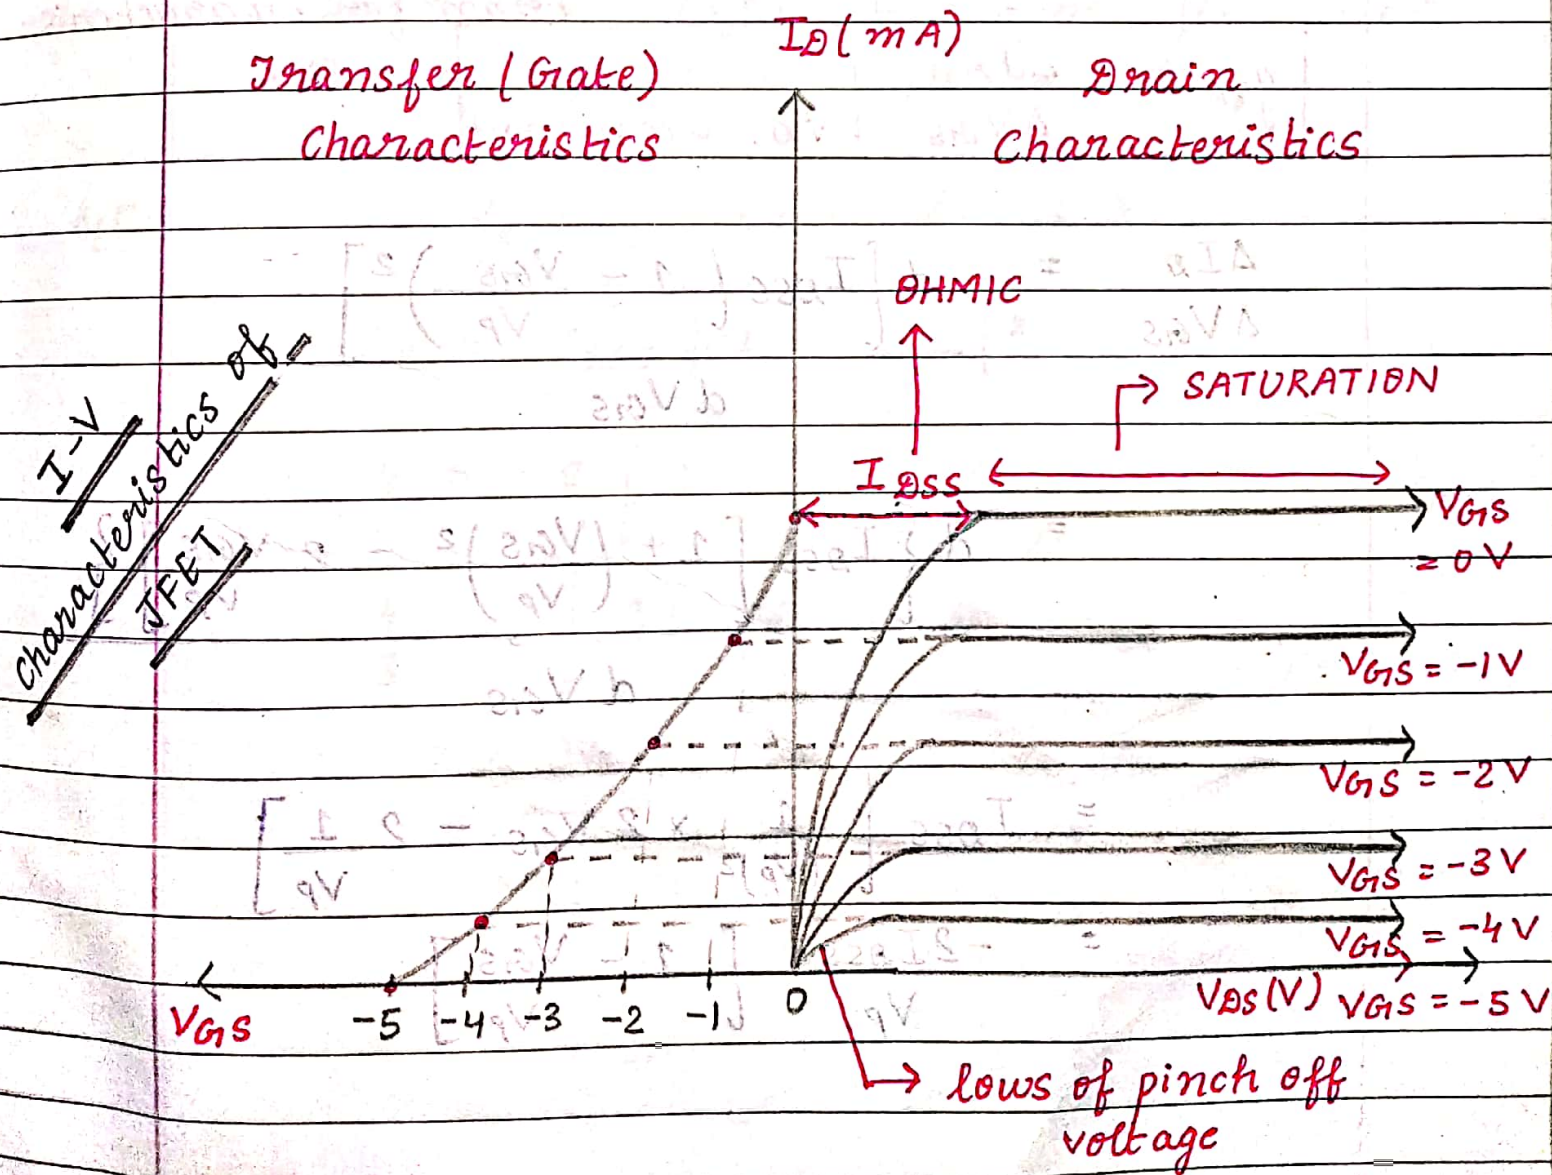 I_D (mA)
Transfer (Gate)
Characteristics
Drain
Characteristics
I-V
Characteristics of
JFET
OHMIC
SATURATION
I_DSS
V_GS
= 0 V
V_GS = -1 V
V_GS = -2 V
V_GS = -3 V
V_GS = -4 V
V_DS (V) V_GS = -5 V
V_GS
-5 -4 -3 -2 -1 0
lows of pinch off
voltage